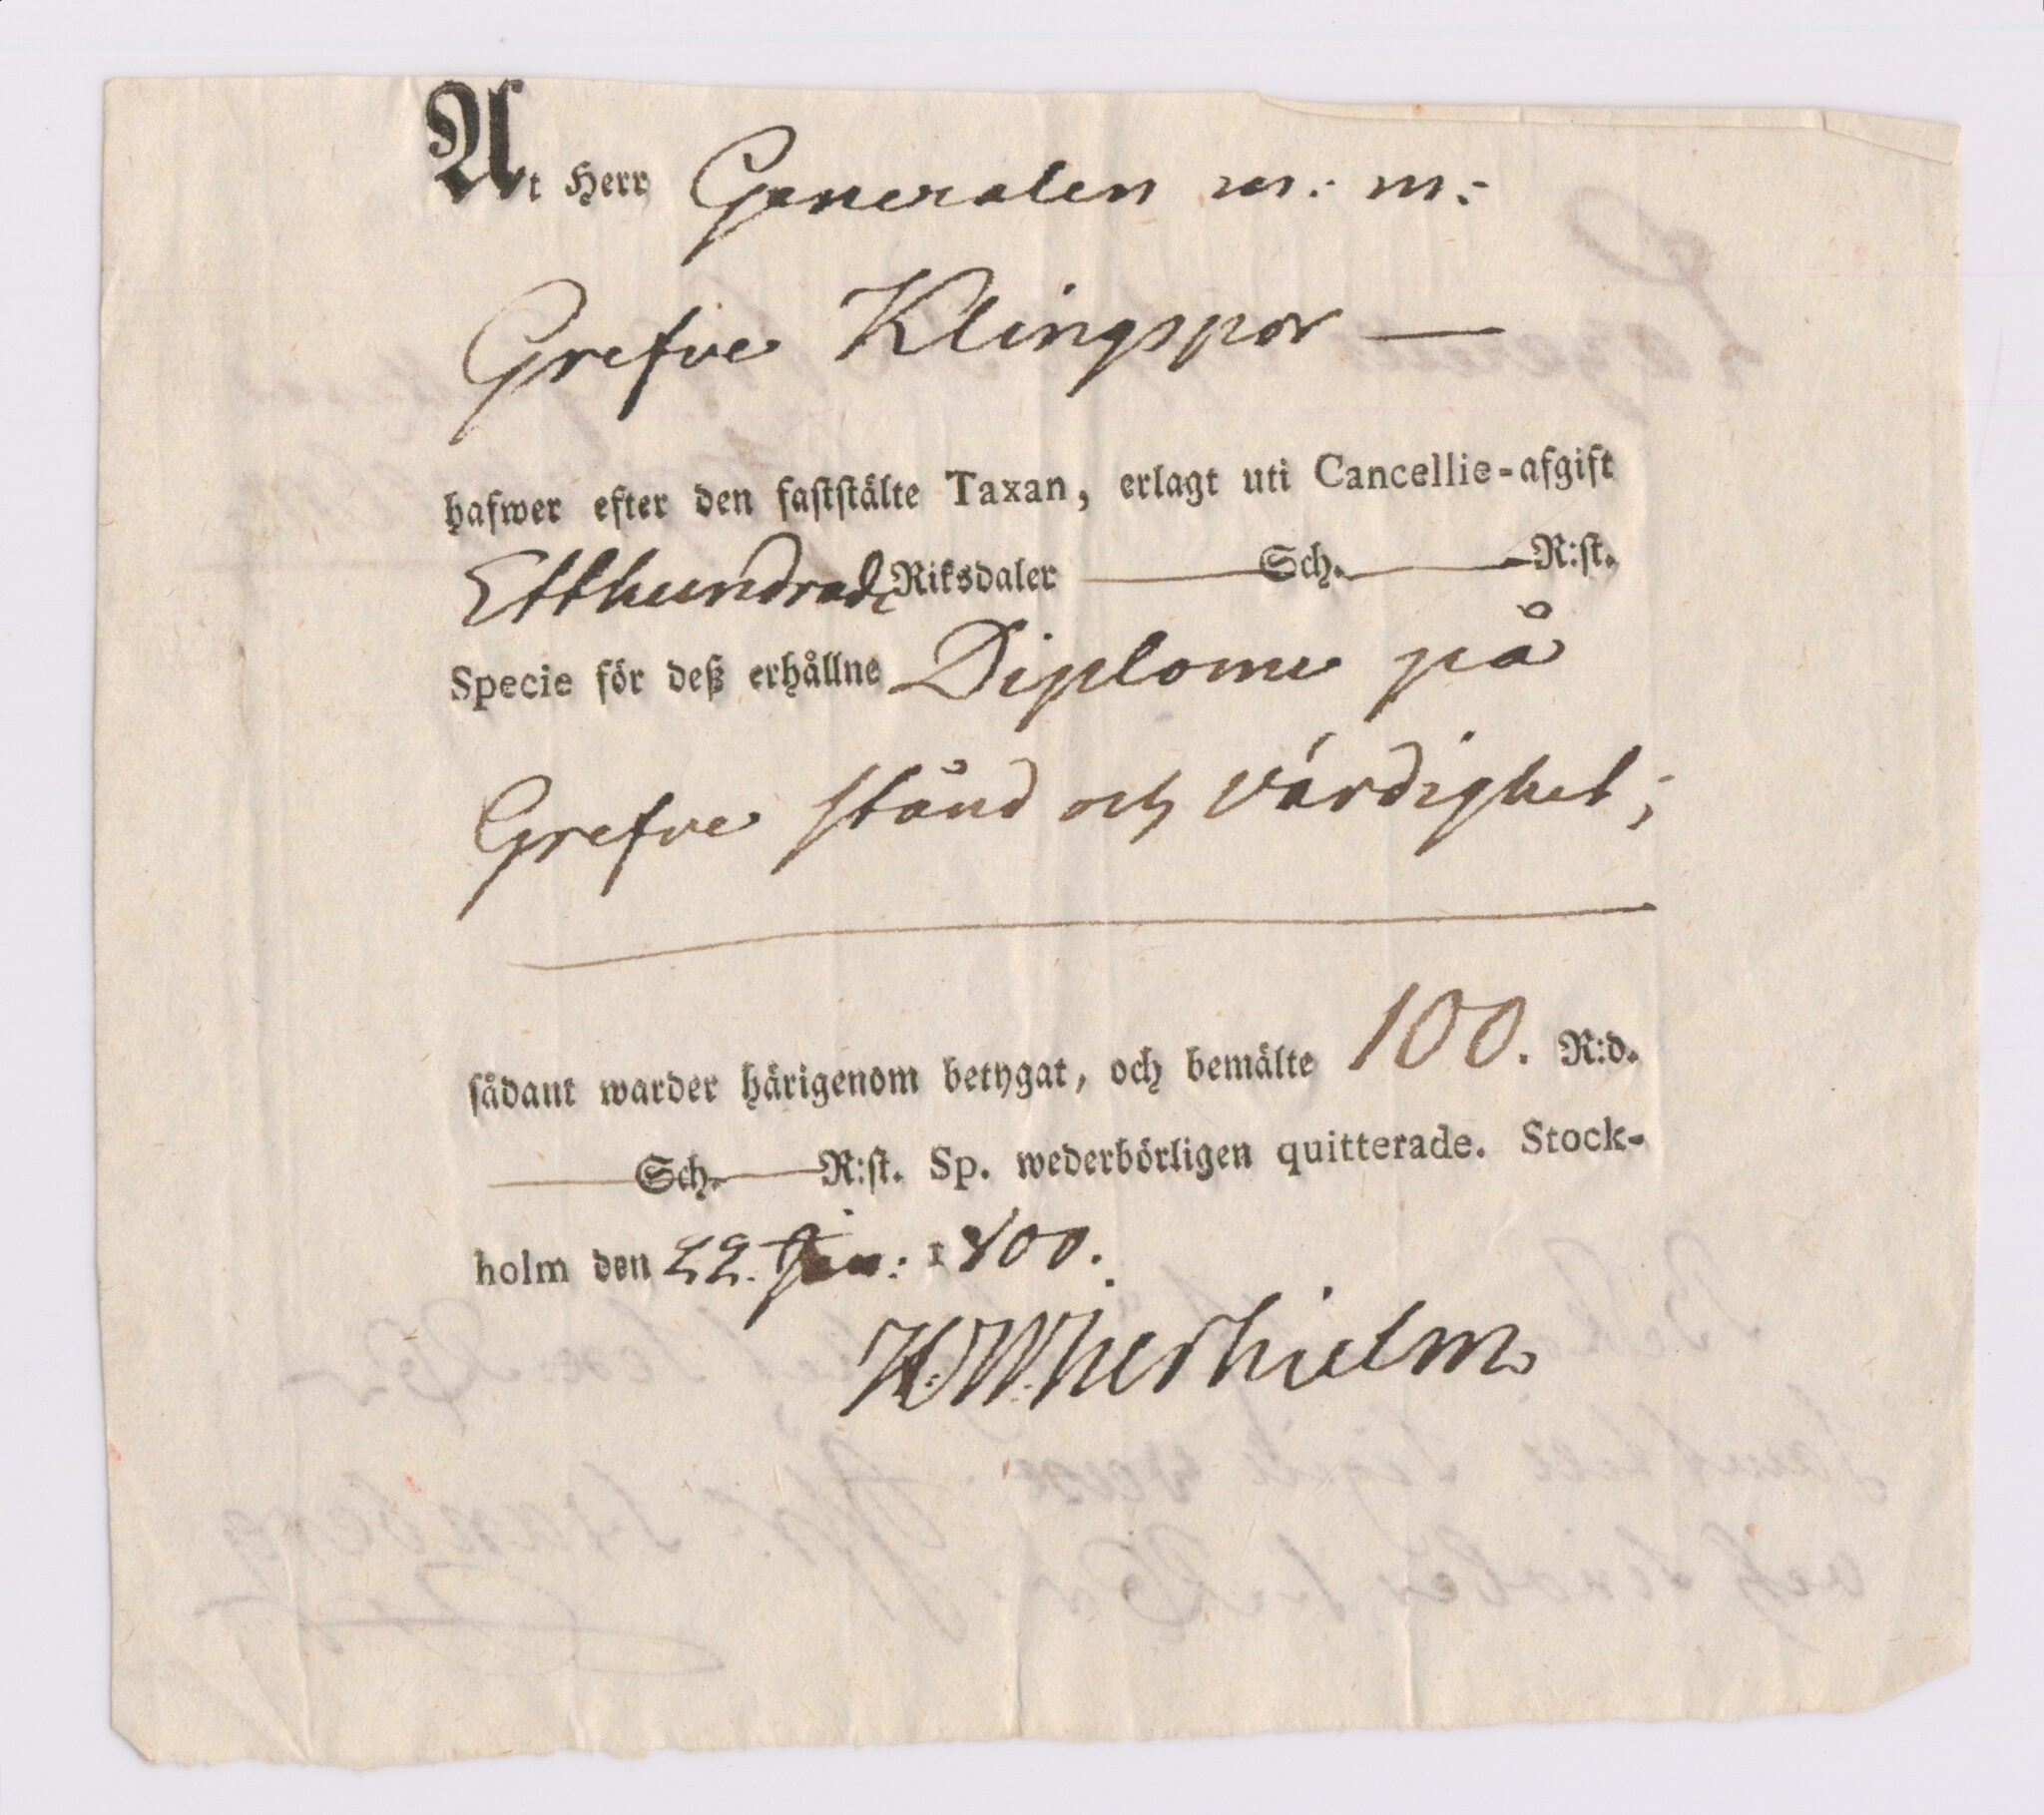 At Herr Generalen m: m:
Grefve Klingspor —
hafwer efter den faststälte Taxan, erlagt uti Cancellie-afgift
Etthundrade Riksdaler — Sch. — R:st.
Specie för deß erhållne Diplome på
Grefve stånd och värdighet;
sådant warder härigenom betygat, och bemälte 100. R:d.
— Sch. — R:st. Sp. wederbörligen quitterade. Stock-
holm den 22. 1800.